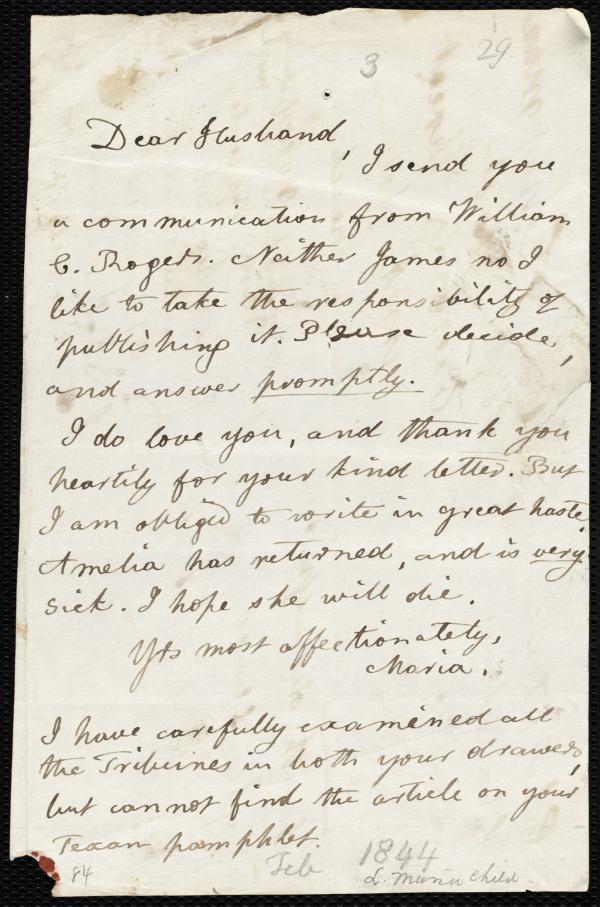 3
29.
Dear Husband,
I send you
a communication from William
C. Rogers. Neither James no I
like to take the responsibility of
publishing it. Please decide,
and answer promptly.
I do love you, and thank you
heartily for your kind letter. But
I am obliged to write in great haste.
Amelia has returned, and is very
sick. I hope she will die.
Yrs most affectionately,
Maria.
I have carefully examined all
the Tribunes in both your drawers,
but cannot find the article on your
Texan pamphlet.
84
Feb 1844
L. Maria Child.